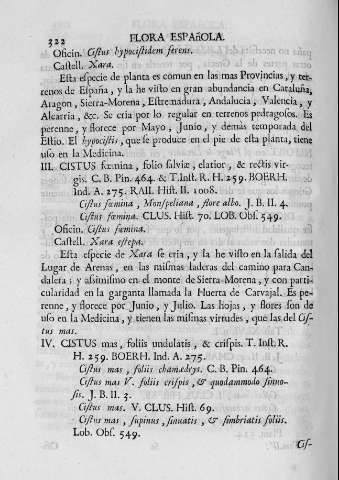 322 FLORA ESPAÑOLA.
Oficin. Cistus hypocistidem ferens.
Castell. Xara.
Esta especie de planta es comun en las mas Provincias, y ter-
renos de España, y la he visto en gran abundancia en Cataluña,
Aragon, Sierra-Morena, Estremadura, Andalucia, Valencia, y
Alcarria, &c. Se cria por lo regular en terrenos pedragosos. Es
perenne, y florece por Mayo, Junio, y demàs temporada del
Estio. El hypocistis, que se produce en el pie de esta planta, tiene
uso en la Medicina.
III. CISTUS fœmina, folio salviæ, elatior, & rectis vir-
gis. C. B. Pin. 464. & T. Inst. R. H. 259. BOERH.
Ind. A. 275. RAII. Hist. II. 1008.
Cistus fœmina, Monspeliana, flore albo. J. B. II. 4.
Cistus fœmina. CLUS. Hist. 70. LOB. Obs. 549.
Oficin. Cistus fœmina.
Castell. Xara estepa.
Esta especie de Xara se cria, y la he visto en la salida del
Lugar de Arenas, en las mismas laderas del camino para Can-
dalera; y asimismo en el monte de Sierra-Morena, y con parti-
cularidad en la garganta llamada la Huerta de Carvajal. Es pe-
renne, y florece por Junio, y Julio. Las hojas, y flores son de
uso en la Medicina, y tienen las mismas virtudes, que las del Cis-
tus mas.
IV. CISTUS mas, foliis undulatis, & crispis. T. Inst. R.
H. 259. BOERH. Ind. A. 275.
Cistus mas, foliis chamædrys. C. B. Pin. 464.
Cistus mas V. foliis crispis, & quodammodo sinuo-
sis. J. B. II. 3.
Cistus mas. V. CLUS. Hist. 69.
Cistus mas, supinus, sinuatis, & fimbriatis foliis.
Lob. Obs. 549.
Cis-